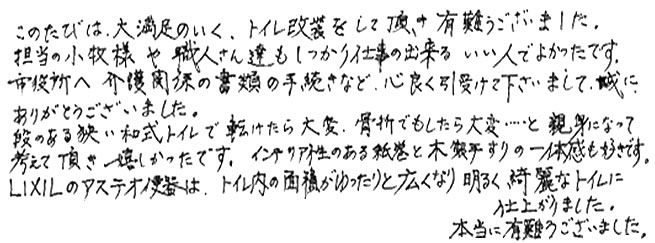 このたびは、大満足のいく、トイレ改装をして頂き有難うございました。
担当の小牧様や職人さん達もしっかり仕事の出来るいい人でよかったです。
市役所へ介護関係の書類の手続きなど、心良く引受けて下さいまして、誠に
ありがとうございました。
段のある狭い和式トイレで転けたら大変、骨折でもしたら大変……と親身になって
考えて頂き嬉しかったです。インテリア性のある紙巻と木製手すりの一体感も好きです。
LIXILのアステオ便器は、トイレ内の面積がゆったりと広くなり明るく綺麗なトイレに
仕上がりました。
本当に有難うございました。